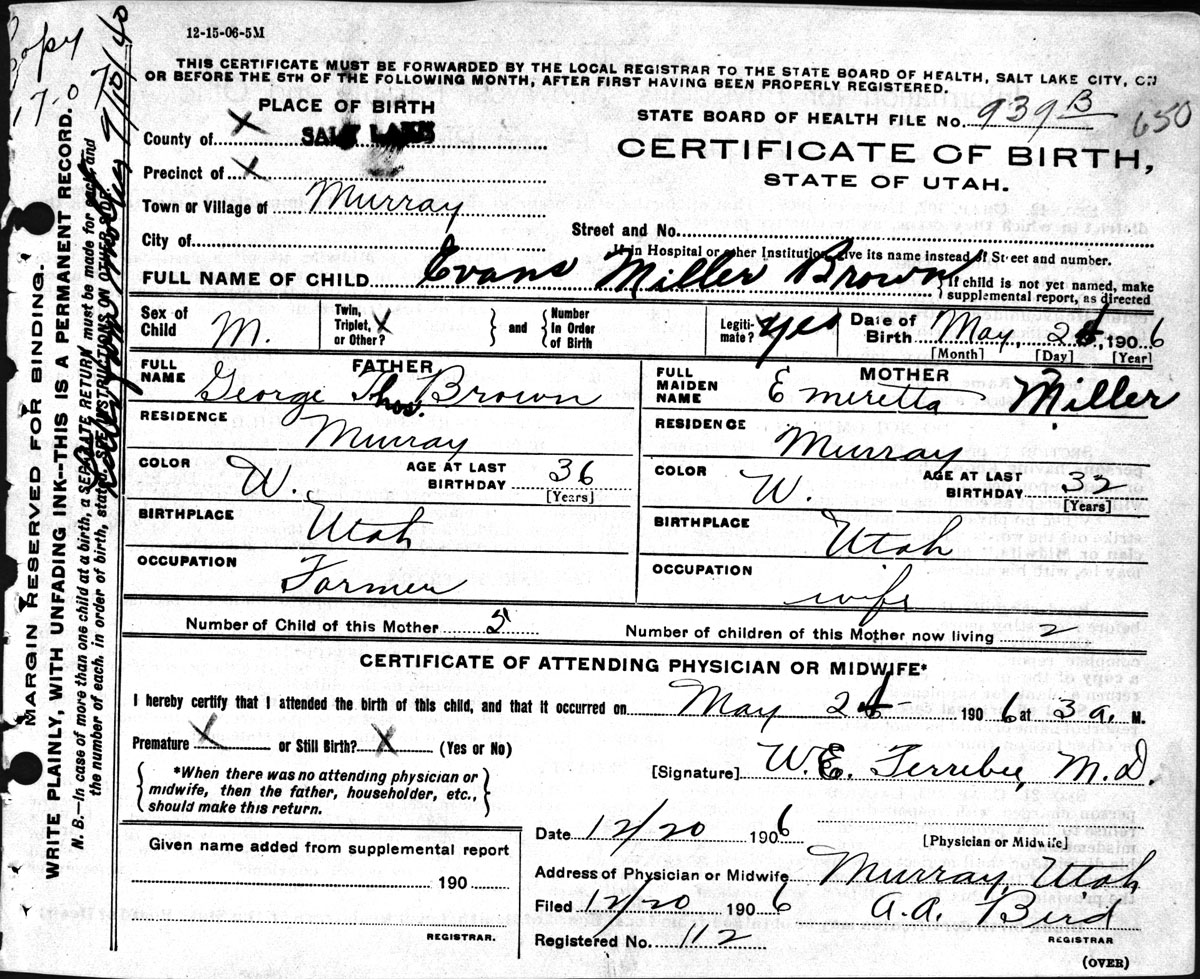 12-15-06-5M
Copy
THIS CERTIFICATE MUST BE FORWARDED BY THE LOCAL REGISTRAR TO THE STATE BOARD OF HEALTH, SALT LAKE CITY, ON
OR BEFORE THE 5TH OF THE FOLLOWING MONTH, AFTER FIRST HAVING BEEN PROPERLY REGISTERED.
PLACE OF BIRTH
STATE BOARD OF HEALTH FILE No. 939 B 650
County of X SALT LAKE
CERTIFICATE OF BIRTH,
STATE OF UTAH.
Precinct of X
Town or Village of Murray
City of
Street and No.
If in Hospital or other Institution, give its name instead of Street and number.
FULL NAME OF CHILD Evans Miller Brown
If child is not yet named, make
supplemental report, as directed
Sex of Child M.
Twin, Triplet, or Other? X
and Number In Order of Birth
Legitimate? yes
Date of Birth May, 2, 1906
[Month] [Day] [Year]
FATHER
FULL NAME George Thos. Brown
RESIDENCE Murray
COLOR W. AGE AT LAST BIRTHDAY 36
[Years]
BIRTHPLACE Utah
OCCUPATION Farmer
MOTHER
FULL MAIDEN NAME Emeretta Miller
RESIDENCE Murray
COLOR W. AGE AT LAST BIRTHDAY 32
[Years]
BIRTHPLACE Utah
OCCUPATION wife
Number of Child of this Mother 5
Number of children of this Mother now living 2
CERTIFICATE OF ATTENDING PHYSICIAN OR MIDWIFE*
I hereby certify that I attended the birth of this child, and that it occurred on May 2 1906 at 3 a. M.
Premature X or Still Birth? X (Yes or No)
*When there was no attending physician or
midwife, then the father, householder, etc.,
should make this return.
[Signature] W.E. Ferrebee, M.D.
[Physician or Midwife]
Date 12/20 1906
Given name added from supplemental report
190
REGISTRAR.
Address of Physician or Midwife Murray, Utah
Filed 12/20 1906 A.A. Bird
REGISTRAR
Registered No. 112
(OVER)
MARGIN RESERVED FOR BINDING.
WRITE PLAINLY, WITH UNFADING INK--THIS IS A PERMANENT RECORD.
N. B.—In case of more than one child at a birth, a SEPARATE RETURN must be made for each, and
the number of each, in order of birth, stated. SEE INSTRUCTIONS ON OTHER SIDE.
9/10/40